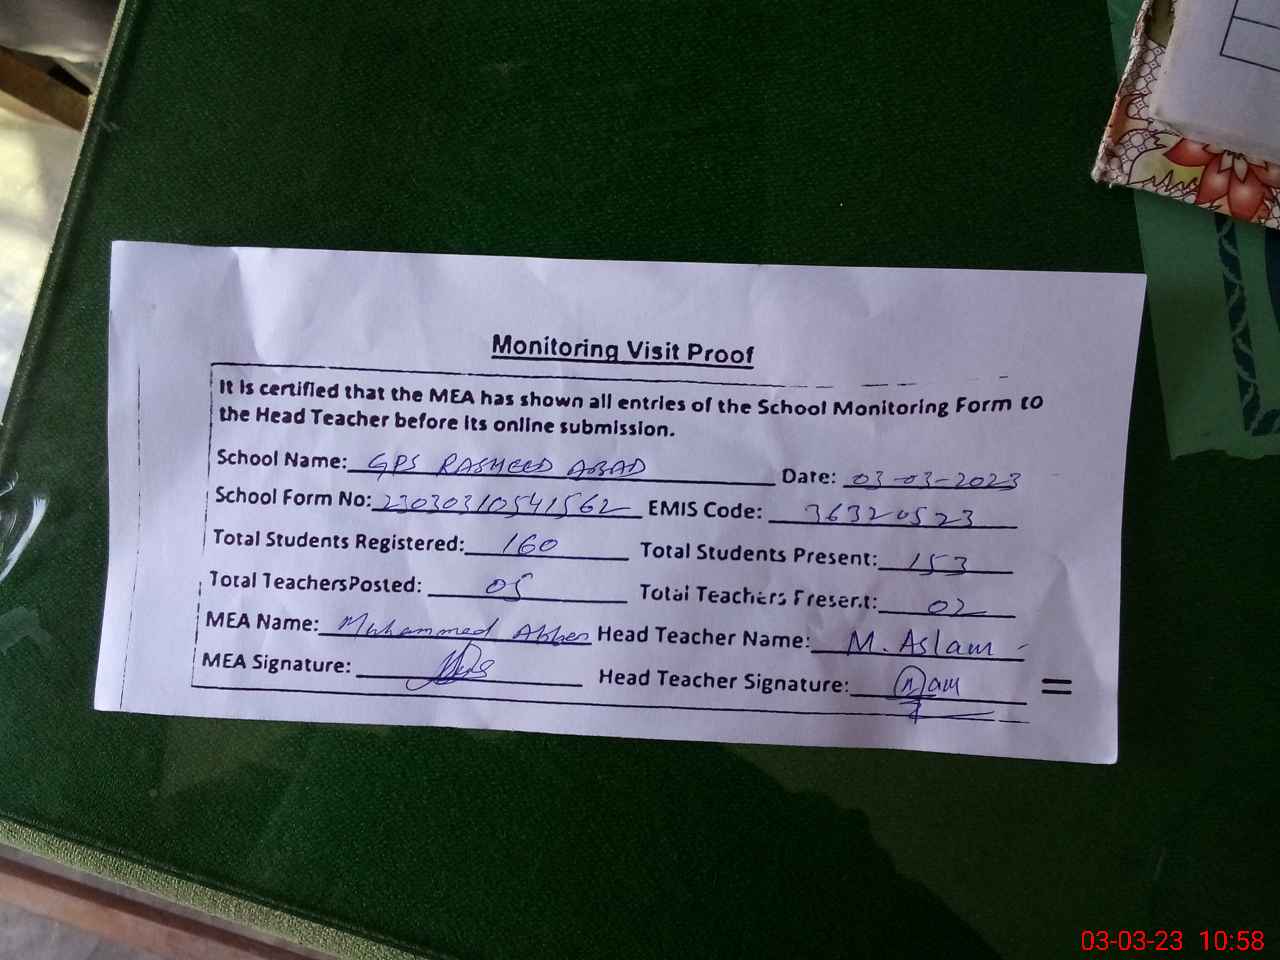 Monitoring Visit Proof
It is certified that the MEA has shown all entries of the School Monitoring Form to
the Head Teacher before its online submission.
School Name: GPS RASHEED ABAD Date: 03-03-2023
School Form No: 23030310541562 EMIS Code: 36320523
Total Students Registered: 160 Total Students Present: 153
Total Teachers Posted: 05 Total Teachers Present: 02
MEA Name: Muhammed Akber Head Teacher Name: M. Aslam
MEA Signature: Head Teacher Signature:
03-03-23 10:58